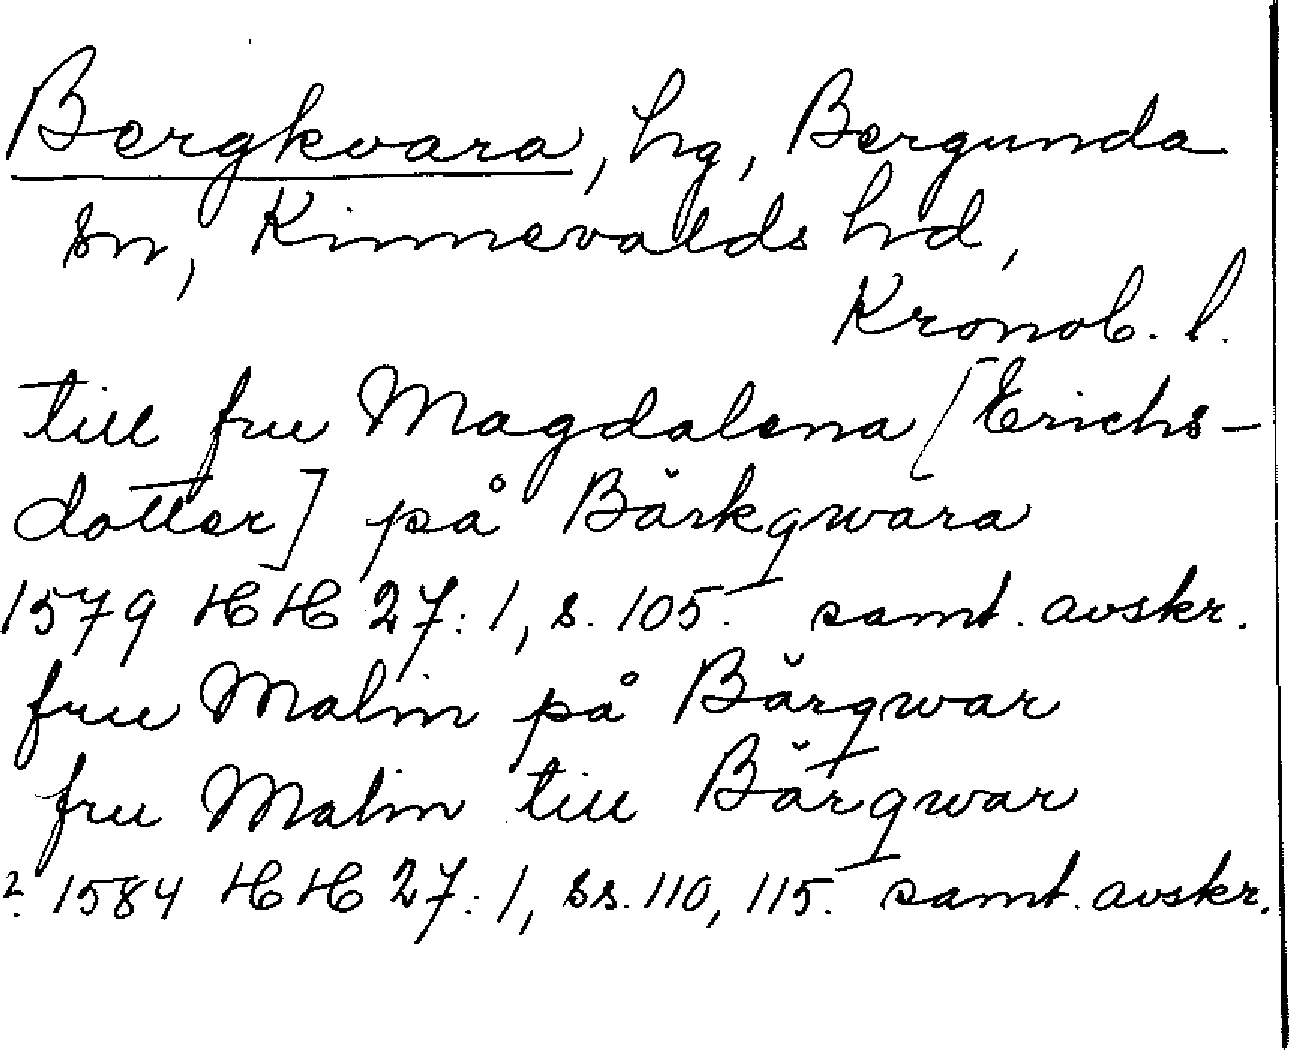 Bergkvara, hg, Bergunda
sn, Kinnevalds hd,
Kronob. l.
till frue Magdalena [Erichs-
dotter] på Bärkqwara
1579 HH 27:1, s. 105. samt. avskr.
frue Malin på Bärqwar
fru Malin till Bärqwar
? 1584 HH 27:1, ss. 110, 115. samt. avskr.